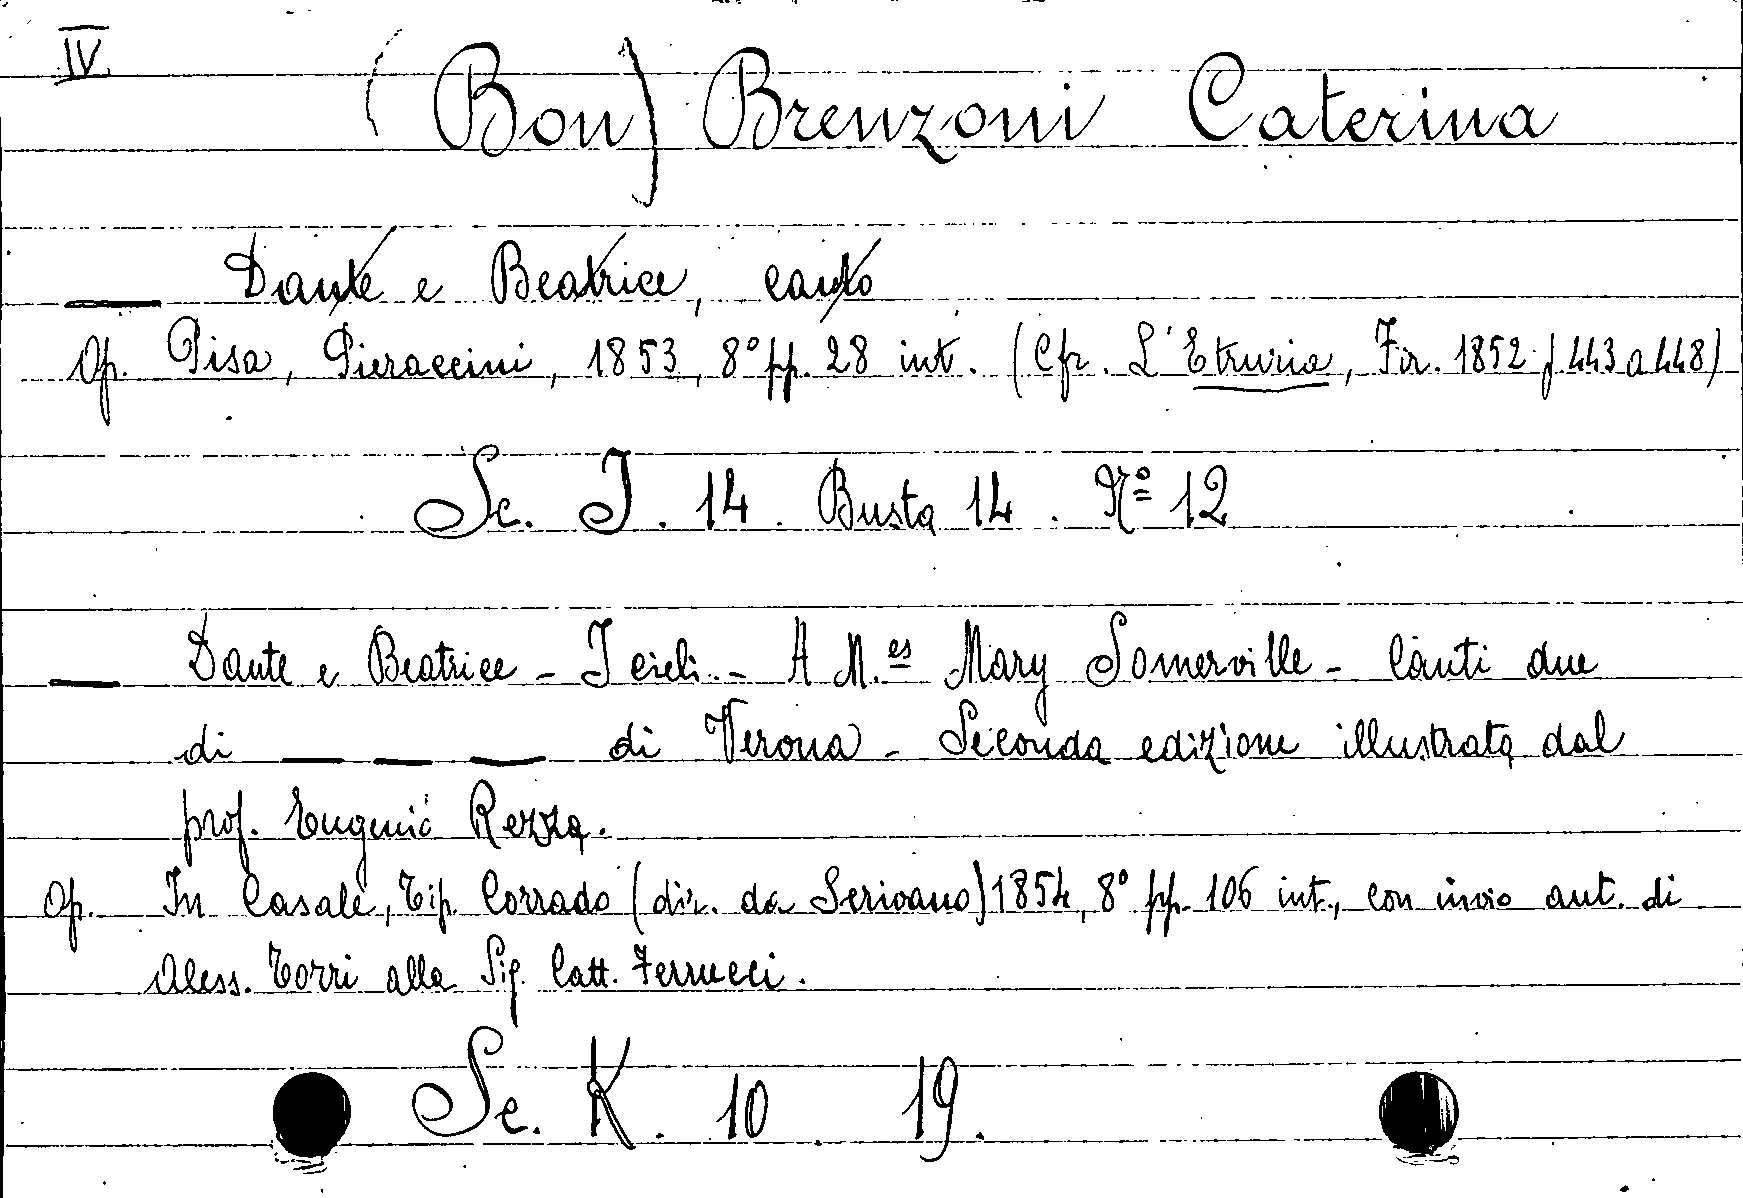 IV
(Bon) Brenzoni Caterina
— Dante e Beatrice, canto
Op. Pisa, Pieraccini, 1853, 8° pp. 28 int. (Cfr. L'Etruria, Fir. 1852 p 443 a 448)
Sc. I. 14. Busta 14. N° 12
— Dante e Beatrice - I cieli. - A M.es Mary Somerville - Canti due
di — — — di Verona - Seconda edizione illustrata dal
prof. Eugenio Rezza.
Op. In Casale, Tip. Corrado (dir. da Scrivano) 1854, 8° pp. 106 int., con invio aut. di
Aless. Torri alla Sig. Catt. Ferrucci.
Sc. K. 10. 19.